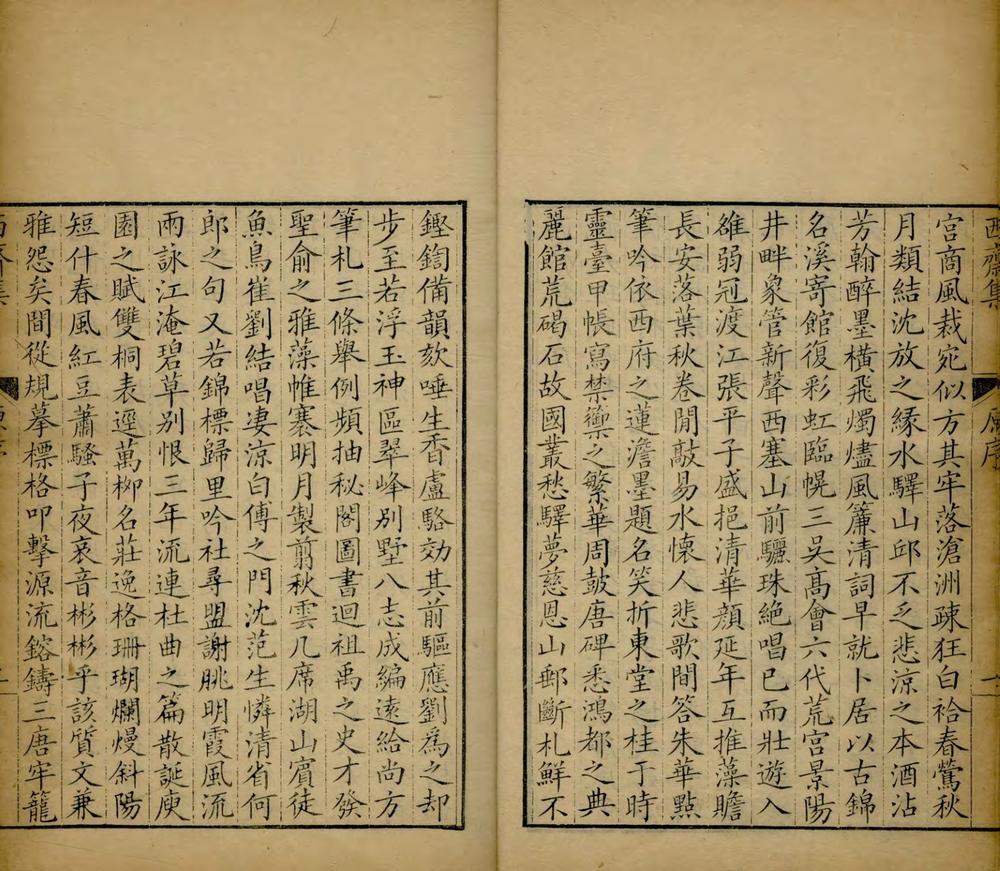 西齋集
原序
宮商風裁宛似方其牢落滄洲疎狂白袷春鶯秋
月類結沈放之緣水驛山邱不乏悲涼之本酒沾
芳翰醉墨橫飛燭燼風簾清詞早就卜居以古錦
名溪寄館復彩虹臨幌三吳高會六代荒宮景陽
井畔象管新聲西塞山前驪珠絕唱已而壯遊入
雒弱冠渡江張平子盛挹清華顏延年互推藻贍
長安落葉秋卷閒敲易水懷人悲歌間答朱華點
筆吟依西府之蓮澹墨題名笑折東堂之桂于時
靈臺甲帳寫禁籞之繁華周鼓唐碑悉鴻都之典
麗館荒碣石故國叢愁驛夢慈恩山郵斷札鮮不
鏗鍧備韻欬唾生香盧駱効其前驅應劉為之却
步至若浮玉神區翠峰別墅八志成編遠給尚方
筆札三條舉例頻抽秘閣圖書迴祖禹之史才發
聖俞之雅藻帷褰明月製剪秋雲几席湖山賓徒
魚鳥崔劉結唱淒涼白傅之門沈范生憐清省何
郎之句又若錦標歸里吟社尋盟謝朓明霞風流
雨詠江淹碧草别恨三年流連杜曲之篇散誕庾
園之賦雙桐表逕萬栁名莊逸格珊瑚斕熳斜陽
短什春風紅豆蕭騷子夜哀音彬彬乎該質文兼
雅怨矣間從規摹標格叩擊源流鎔鑄三唐牢籠